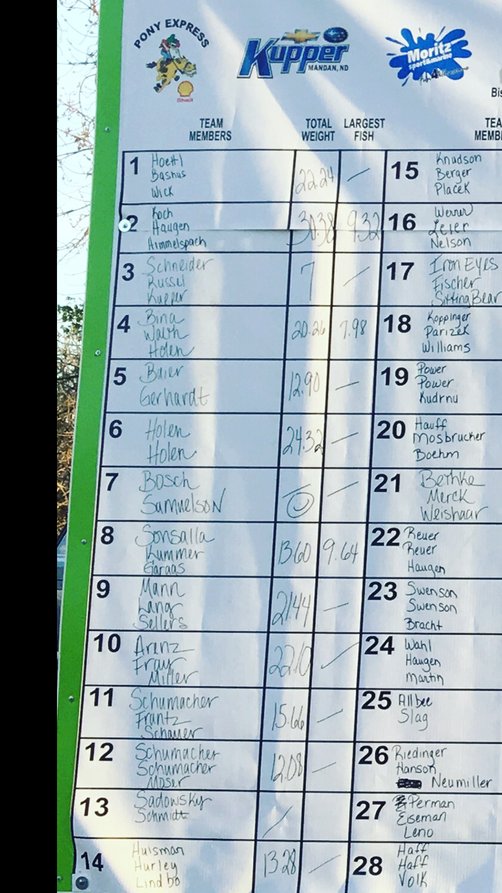 PONY EXPRESS
Shell
Kupper
MANDAN, ND
Moritz
sport&marine
Bis
TEAM MEMBERS TOTAL WEIGHT LARGEST FISH TEA MEM
1 Hoettl Bashus Wick 22.24 —
2 Koch Haugen Himmelspach 30.38 9.32
3 Schneider Russel Kupper 7 —
4 Bina Walth Holen 20.26 7.98
5 Baier Gerhardt 12.90 —
6 Holen Holen 24.32 —
7 Bosch Samuelson — —
8 Sonsalla Kummer Garaas 13.60 9.64
9 Mann Lang Sellers 21.44 —
10 Arenz Fray Miller 22.10 —
11 Schumacher Frantz Schauer 15.66 —
12 Schumacher Schumacher Moser 12.08 —
13 Sadowsky Schmidt —
14 Huisman Hurley Lindbo 13.28 —
15 Knudson Berger Placek
16 Werner Leier Nelson
17 Iron Eyes Fischer Sitting Bear
18 Koppinger Parizek Williams
19 Power Power Kudrna
20 Hauff Mosbrucker Boehm
21 Bethke Merck Weishaar
22 Reuer Reuer Haugen
23 Swenson Swenson Bracht
24 Wahl Haugen Martin
25 Allbee Slag
26 Riedinger Hanson Neumiller
27 Perman Eiseman Leno
28 Haff Haff Volk